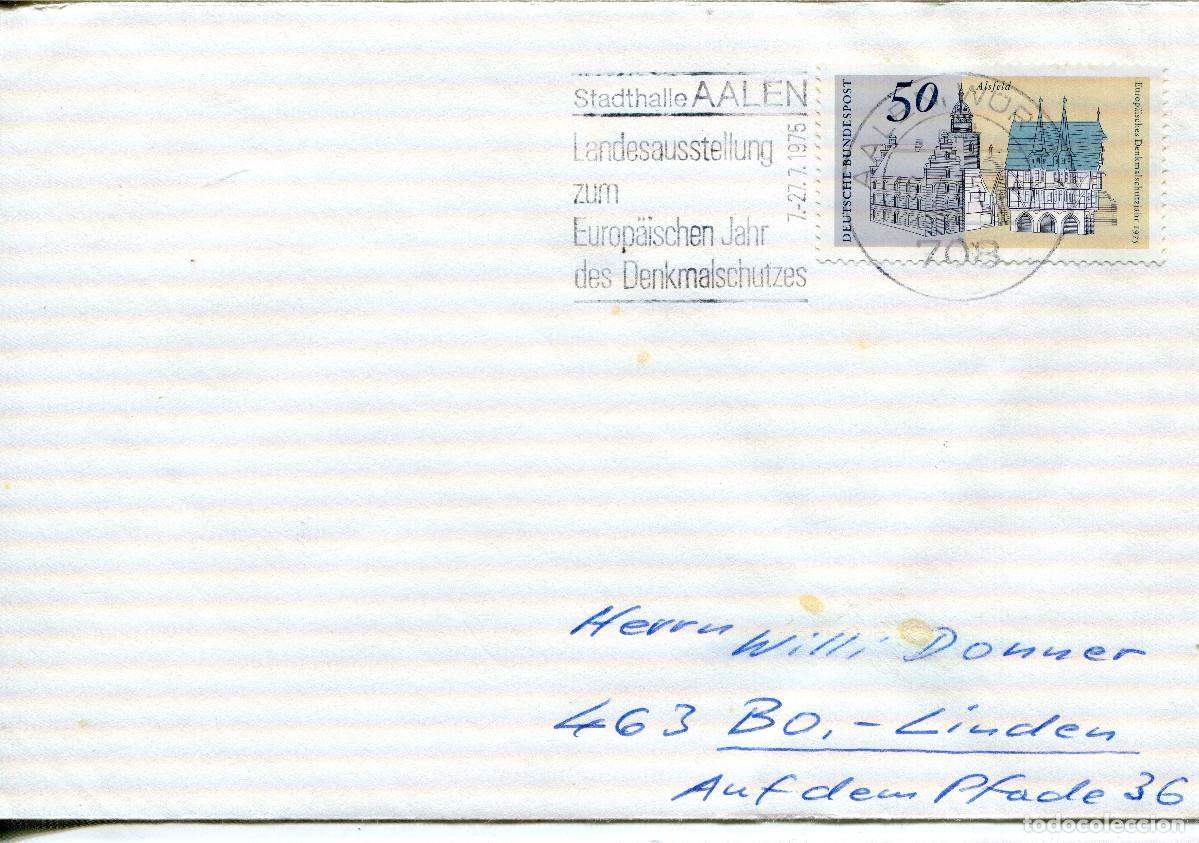 Stadthalle AALEN
Landesausstellung
zum
Europäischen Jahr
des Denkmalschutzes
7.-27.7.1975
DEUTSCHE BUNDESPOST
50
Alsfeld
Europäisches Denkmalschutzjahr 1975
708
Herrn
Willi Donner
463 BO.-Linden
Auf dem Pfade 36
todocoleccion